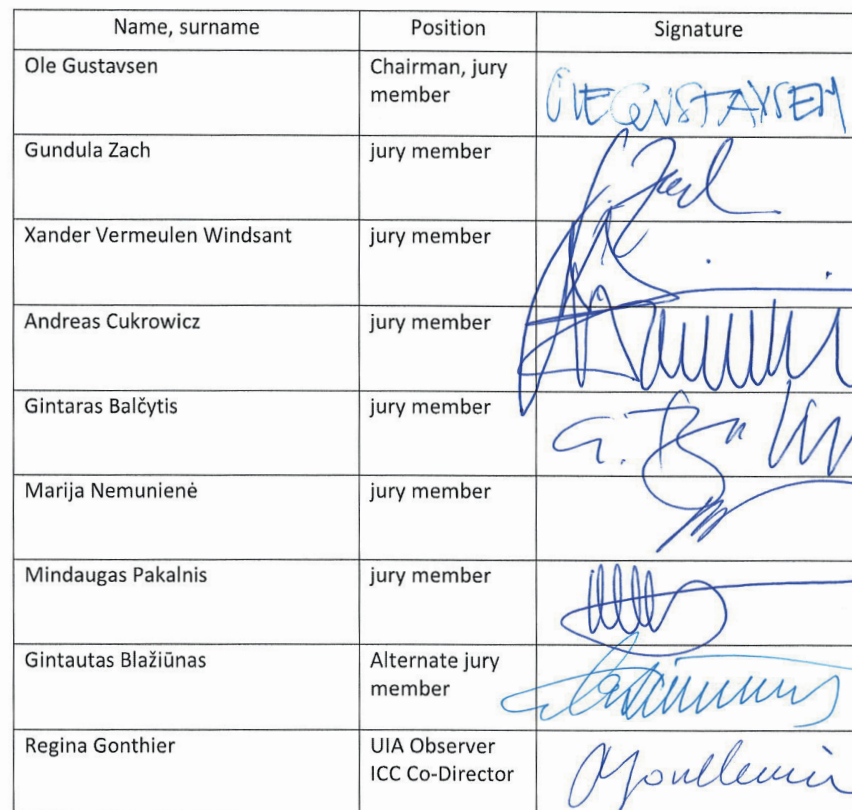 Name, surname Position Signature
Ole Gustavsen Chairman, jury
member
OLE GUSTAVSEN
Gundula Zach jury member
Xander Vermeulen Windsant jury member
Andreas Cukrowicz jury member
Gintaras Balčytis jury member
Marija Nemunienė jury member
Mindaugas Pakalnis jury member
Gintautas Blažiūnas Alternate jury
member
Regina Gonthier UIA Observer
ICC Co-Director